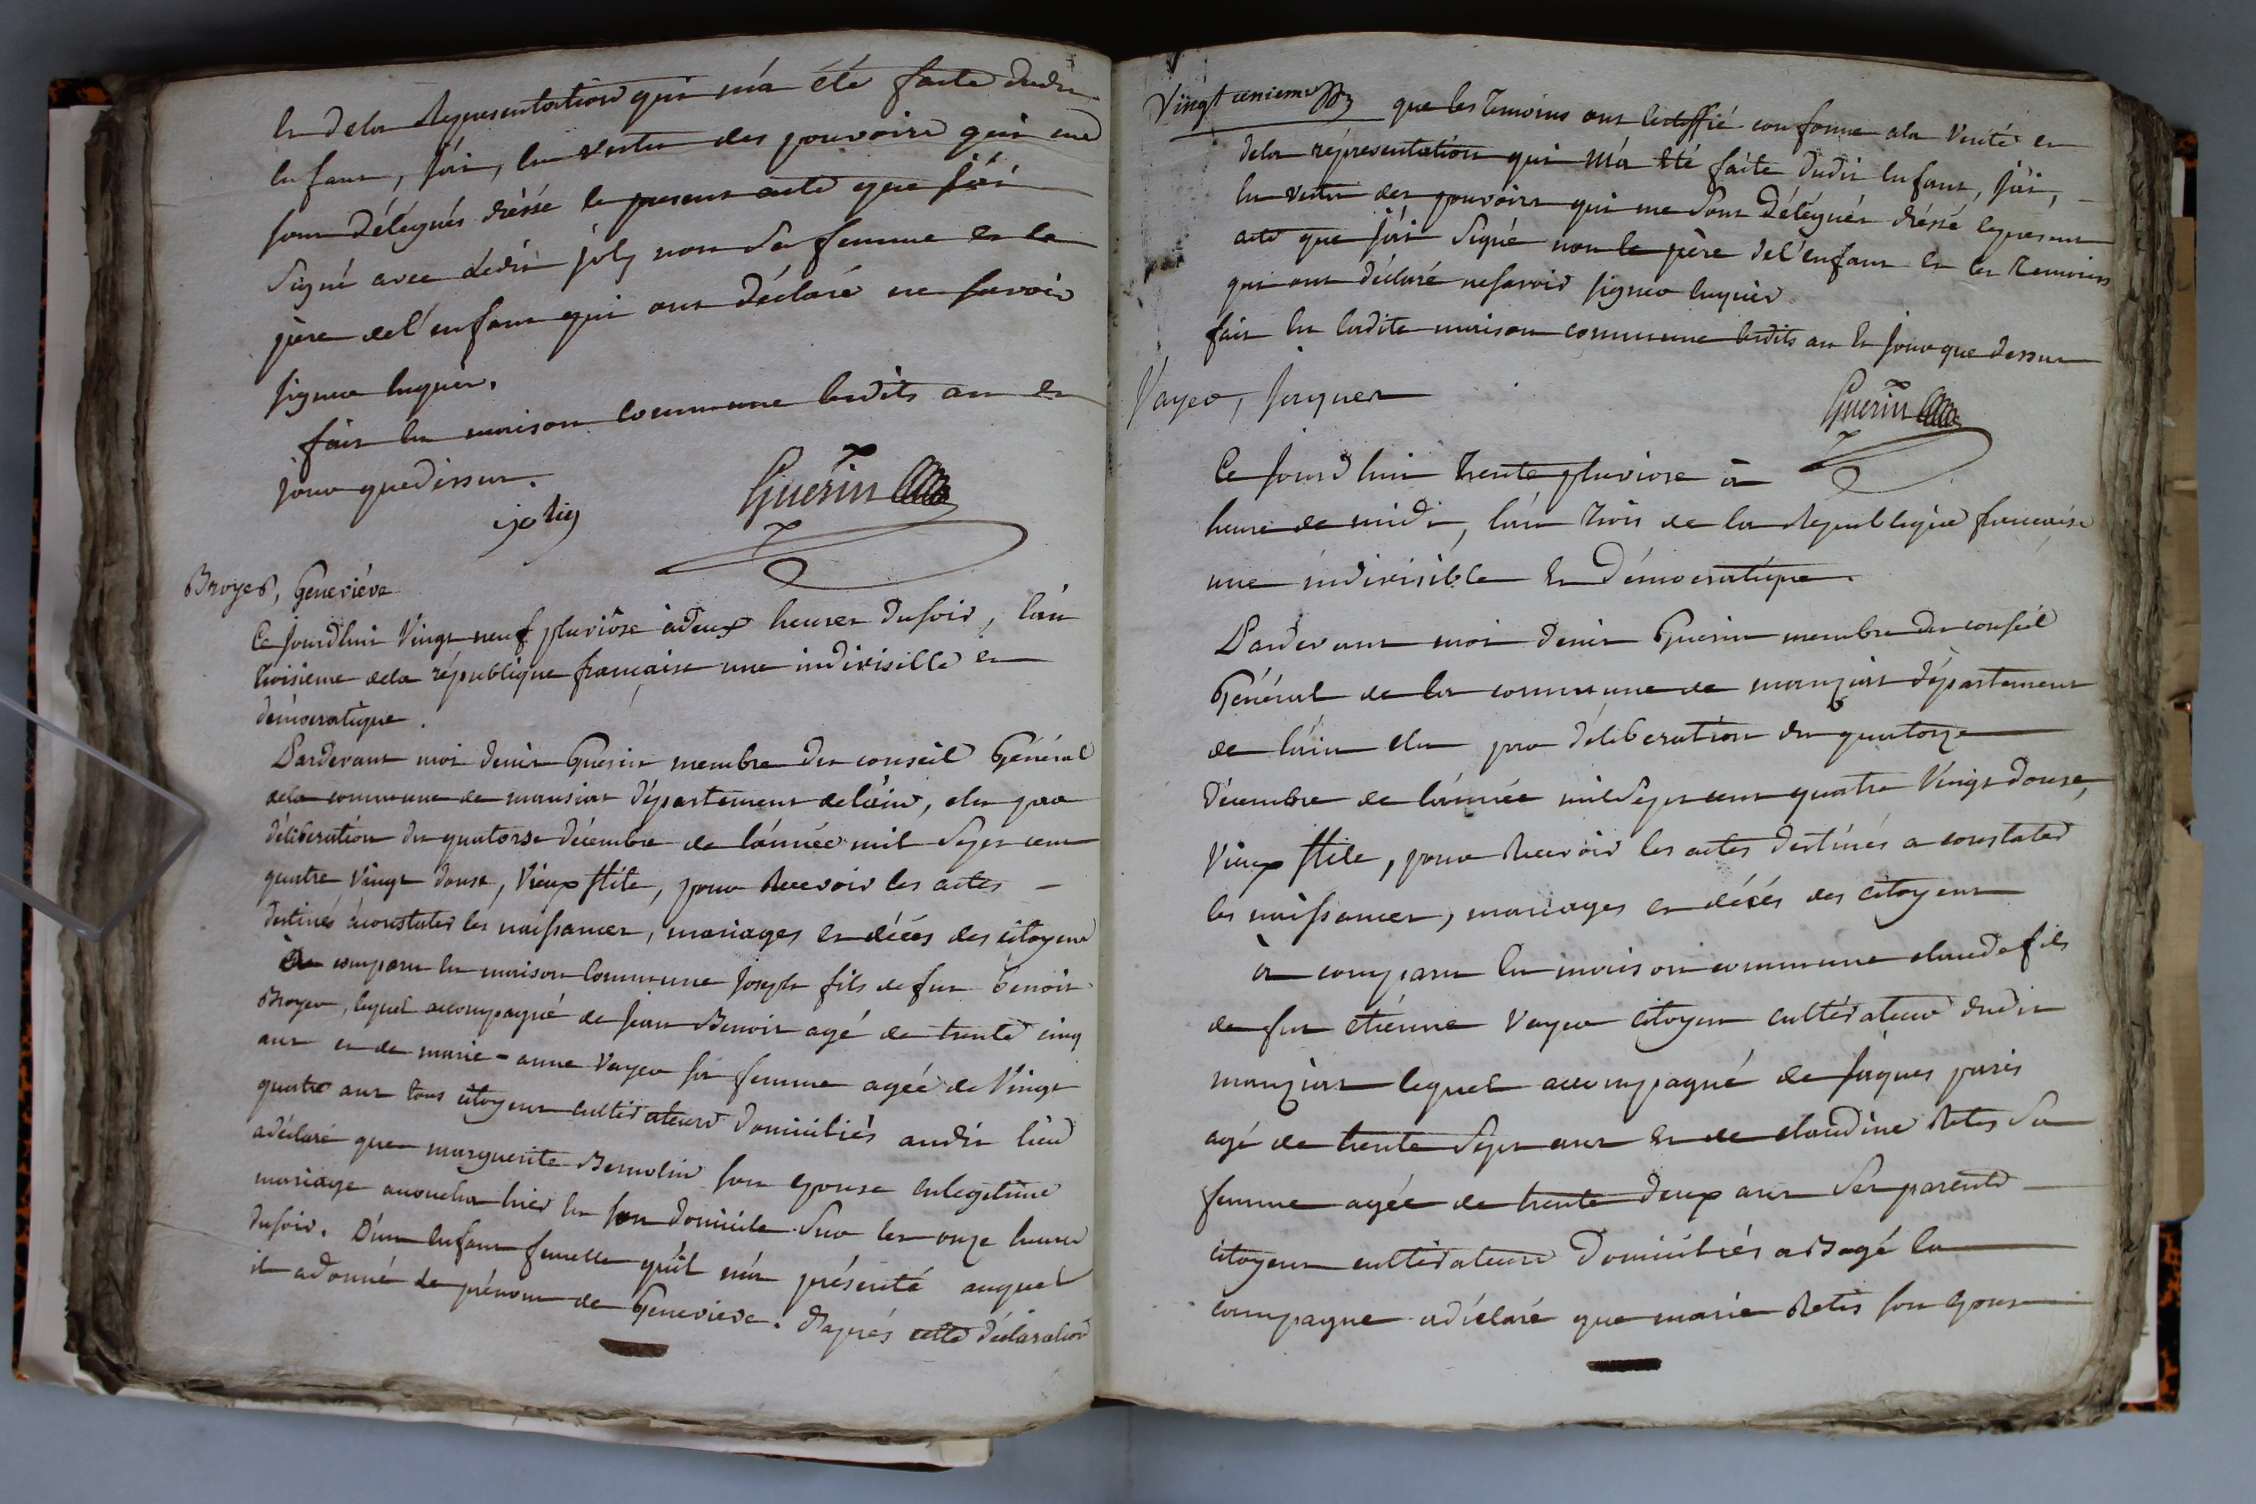 en dela Representation qui m'a été faite dudit
enfant, j'ai, en vertu des pouvoirs qui me
sont délégués dréssé le present acte que j'ai
signé avec ledit joly non sa femme et le
père de l'enfant qui ont déclaré ne savoir
signer enquis.
fait en maison commune lesdits an et
jour que dessus.
joliy
Guerin
Broyer, Geneviève
Ce jourdhui vingt neuf pluviôse à deux heures du soir, l'an
troisieme dela république française une indivisible et
démocratique.
Pardevant moi denis Guerin membre du conseil Général
dela commune de mansiat département de l'ain, elu par
déliberation du quatorse décembre de l'année mil sept cent
quatre vingt douse, vieux stile, pour recevoir les actes
destinés à constater les naissances, mariages et décés des citoyens
a comparu en maison commune joseph fils de feu Benoit
Broyer, lequel accompagné de jean Benoit agé de trente cinq
ans et de marie-anne Vayer sa femme agée de vingt
quatre ans tous citoyens cultivateurs domiciliés audit lieu
a déclaré que marguerite Bernolin son epouse en legitime
mariage accoucha hier en son domicile sur les onze heures
du soir. D'un enfant femelle qu'il m'a présenté auquel
il a donné le prénom de Geneviève. d'après cette déclaration
Vingt unieme
que les temoins ont certiffié conforme a la verité et
dela réprésentation qui m'a été faite dudit enfant, j'ai,
en vertu des pouvoirs qui me sont délégués dréssé le present
acte que j'ai signé non le père de l'enfant et les temoins
qui ont déclaré ne savoir signer enquis
fait en ladite maison commune lesdits an et jour que dessus
Vayer, jaques
Guerin
Ce jourd'hui trente pluviose a
heure de midi, l'an trois de la Republique française
une indivisible et démocratique.
Pardevant moi denis Guerin membre du conseil
Général de la commune de manziat département
de l'ain elu par déliberation du quatorze
décembre de l'année mil sept cent quatre vingt douse,
vieux stile, pour recevoir les actes destinés a constater
les naissances, mariages et décés des citoyens
a comparu en maison commune claude fils
de feu etienne Vayer citoyen cultivateur dudit
manziat lequel accompagné de jaques paris
agé de trente sept ans et de claudine Retis sa
femme agée de trente deux ans ses parents
citoyens cultivateurs domiciliés a Bagé la
campagne a déclaré que marie Retis son epouse